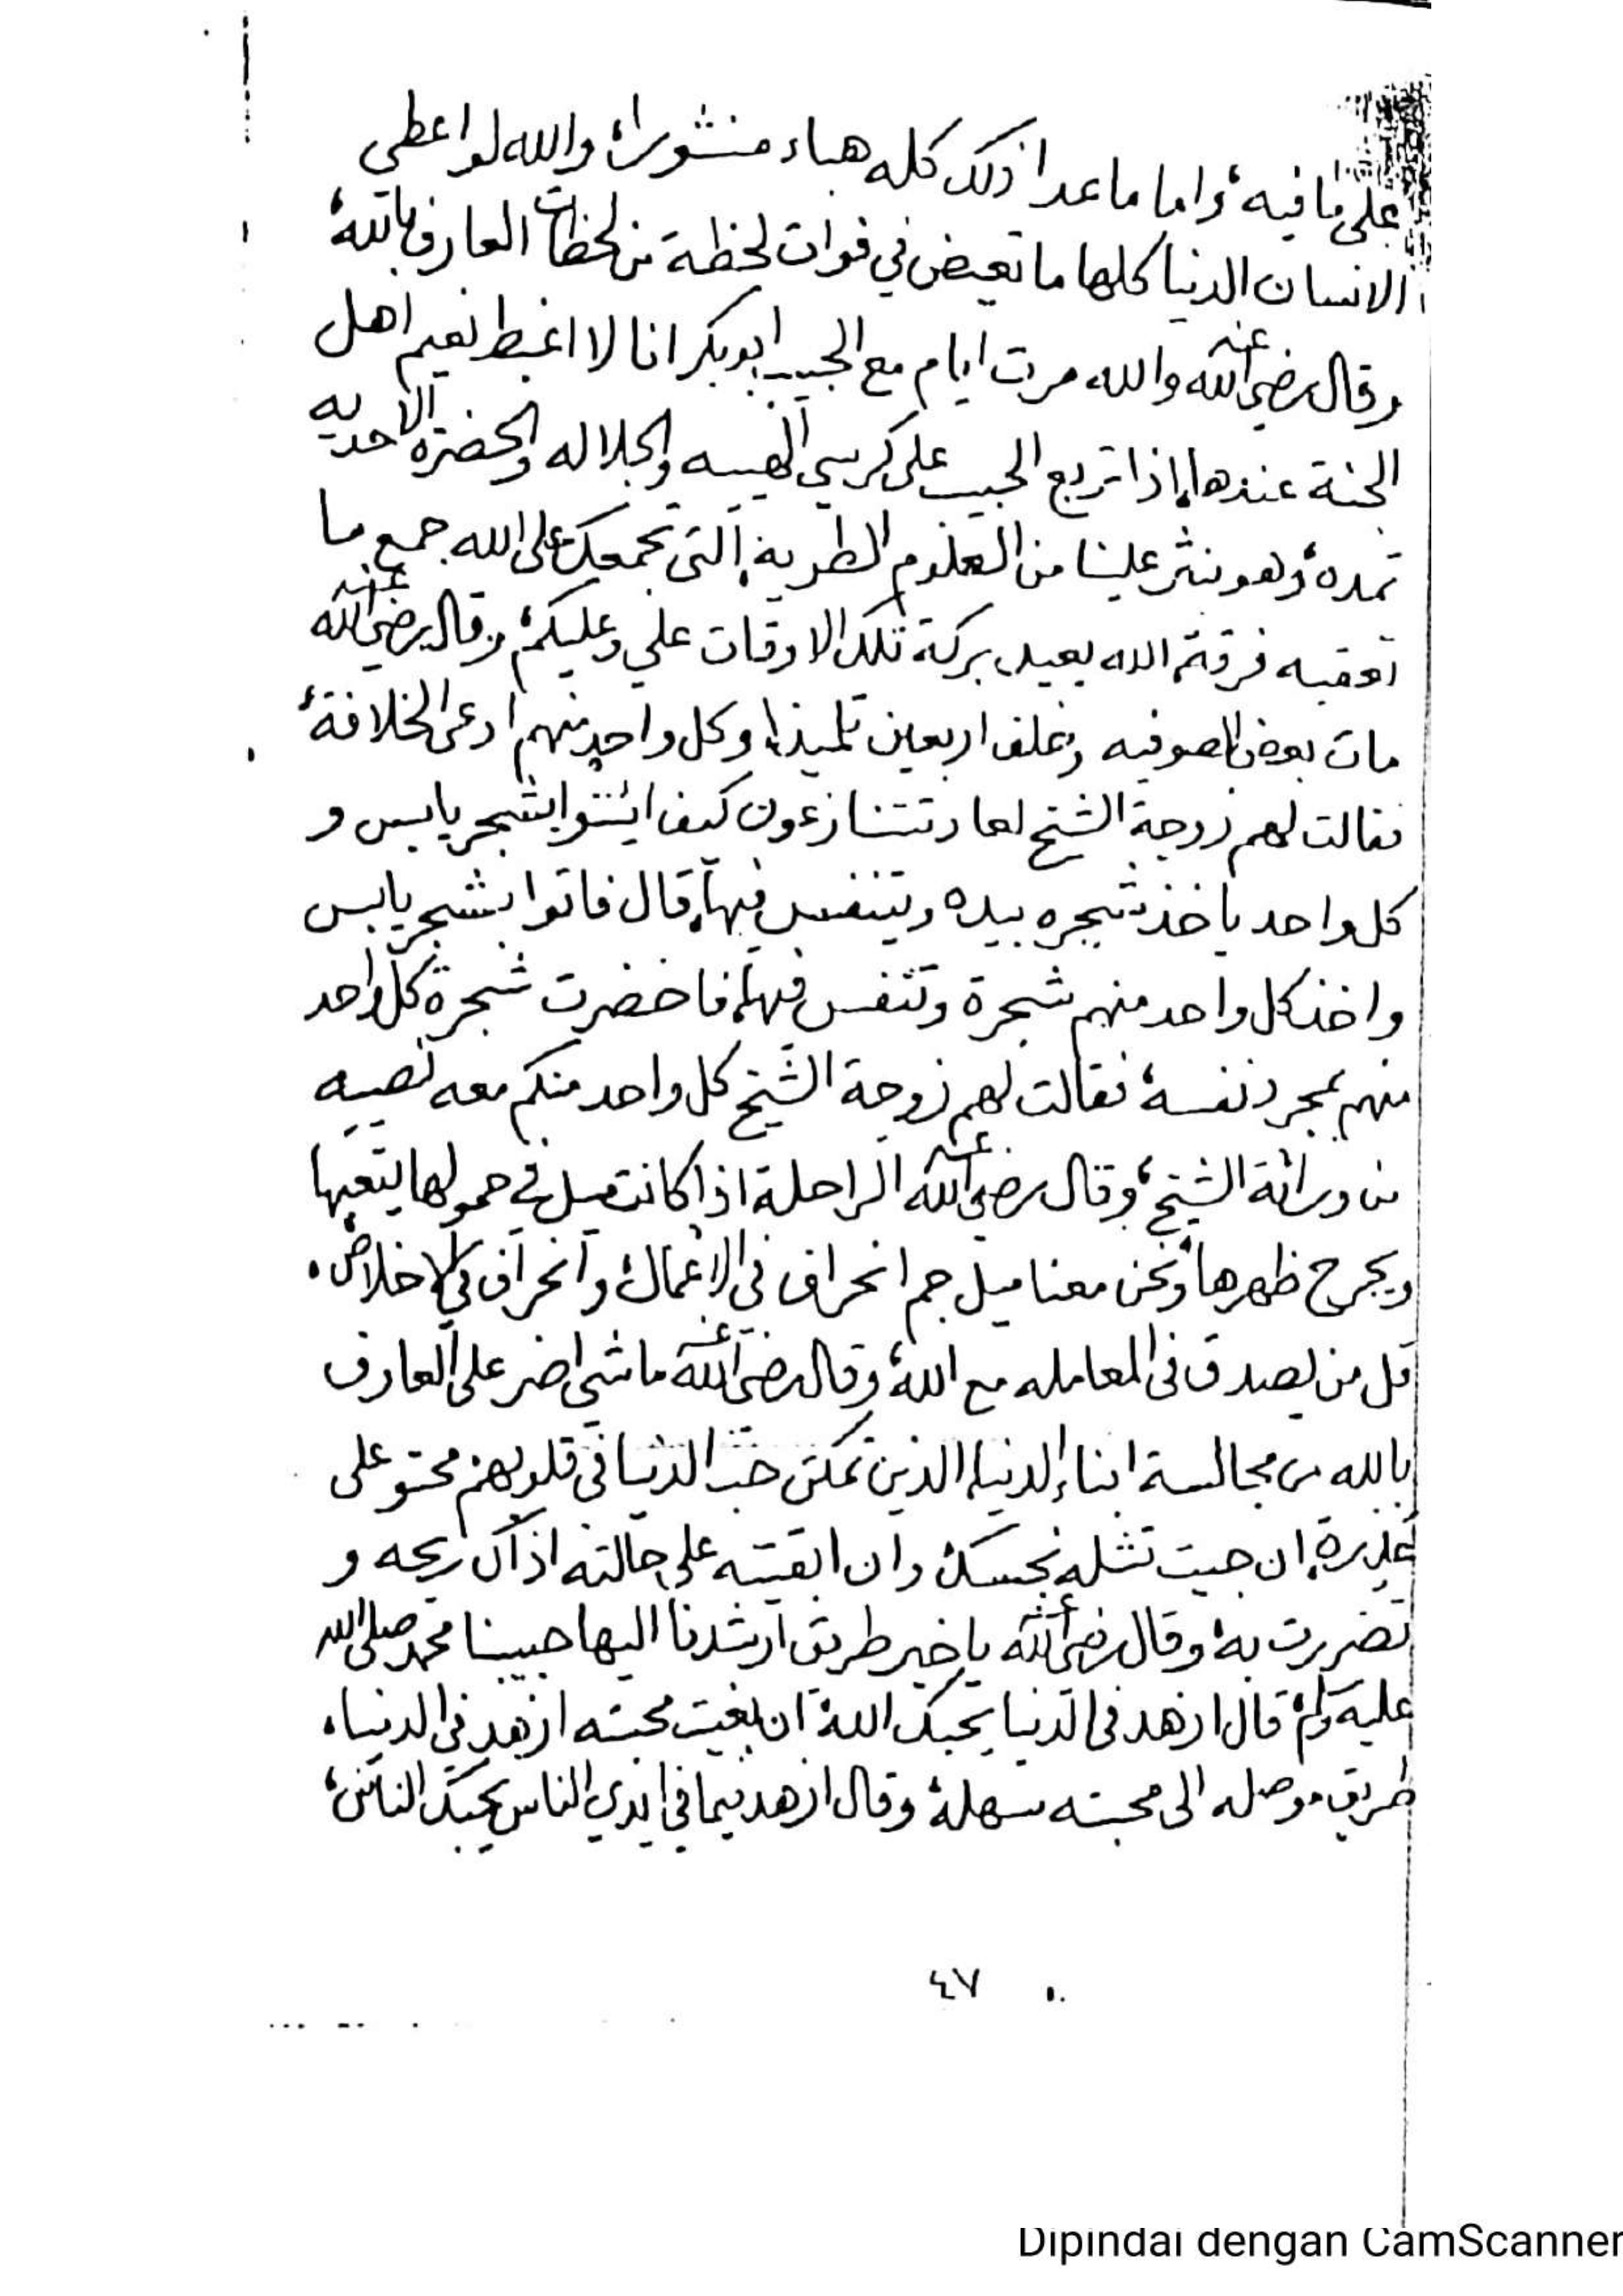 على ما فيه، واما ما عدا ذلك كله هباء منثورا، والله لو اعطي
الانسان الدنيا كلها ما تعيض في فوات لحظة من لحظات العارف بالله،
وقال رضي الله عنه والله مرت ايام مع الحبيب ابوبكر انا لا اغبط نعيم اهل
الجنة عندها، اذا تربع الحبيب على كرسي الهيبه والجلاله والحضرة الاحديه
تمده، وهو ينثر علينا من العلوم الطريه، التي تجمعك على الله جمع ما
تعقبه فرقة، الله يعيد بركة تلك الاوقات علي وعليكم، وقال رضي الله عنه
مات بعض الصوفيه وخلف اربعين تلميذا، وكل واحد منهم ادعى الخلافة،
فقالت لهم زوجة الشيخ لعاد تتنازعون كيف ائتوا بشجر يابس و
كل واحد ياخذ شجره بيده ويتنفس فيها، قال فاتوا بشجر يابس
واخذ كل واحد منهم شجرة وتنفس فيها، فاخضرت شجرة كل واحد
منهم بمجرد نفسه، فقالت لهم زوجة الشيخ كل واحد منكم معه نصيبه
من وراثة الشيخ، وقال رضي الله عنه الراحلة اذا كانت ميل في حمولها يتعبها
ويجرح ظهرها ونحن معنا ميل جم انحراف في الاعمال، وانحراف في الاخلاص،
قل من يصدق في المعامله مع الله، وقال رضي الله عنه ما شي اضر على العارف
بالله من مجالسة ابناء الدنيا، الذين تمكن حب الدنيا في قلوبهم محتو على
عذيرة، ان جيت تشله نجسك، وان ابقيته على حالته اذاك ريحه و
تضررت به، وقال رضي الله عنه يا خير طريق ارشدنا اليها حبيبنا محمد صلى الله
عليه وسلم، قال ازهد في الدنيا يحبك الله، ان بغيت محبته ازهد في الدنيا،
طريق موصله الى محبته سهلة، وقال ازهد فيما في ايدي الناس يحبك الناس،
٤٧
Dipindai dengan CamScanner